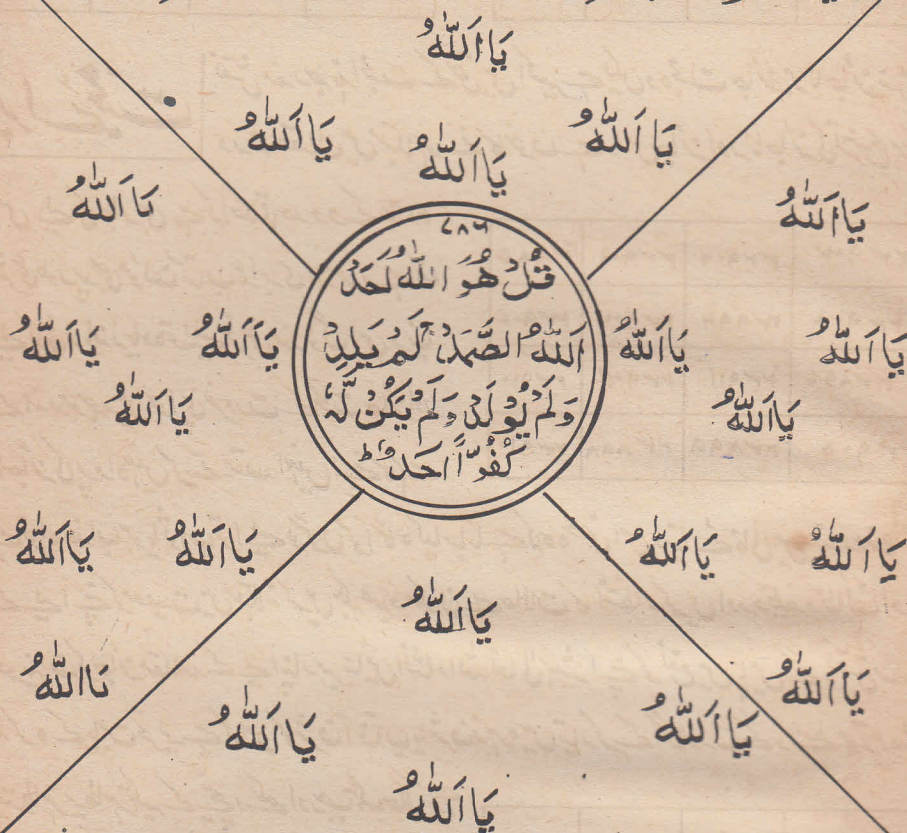 يَا اَللّٰهُ
يَا اَللّٰهُ
يَا اَللّٰهُ
يَا اَللّٰهُ
يَا اَللّٰهُ
يَا اَللّٰهُ
٧٨٦
قُلْ هُوَ اللّٰهُ اَحَدٌ
اَللّٰهُ الصَّمَدُ لَمْ يَلِدْ
وَلَمْ يُوْلَدْ وَلَمْ يَكُنْ لَّهٗ
كُفُوًّا اَحَدٌ ؕ
يَا اَللّٰهُ
يَا اَللّٰهُ
يَا اَللّٰهُ
يَا اَللّٰهُ
يَا اَللّٰهُ
يَا اَللّٰهُ
يَا اَللّٰهُ
يَا اَللّٰهُ
يَا اَللّٰهُ
يَا اَللّٰهُ
يَا اَللّٰهُ
يَا اَللّٰهُ
يَا اللّٰهُ
يَا اَللّٰهُ
يَا اَللّٰهُ
يَا اَللّٰهُ